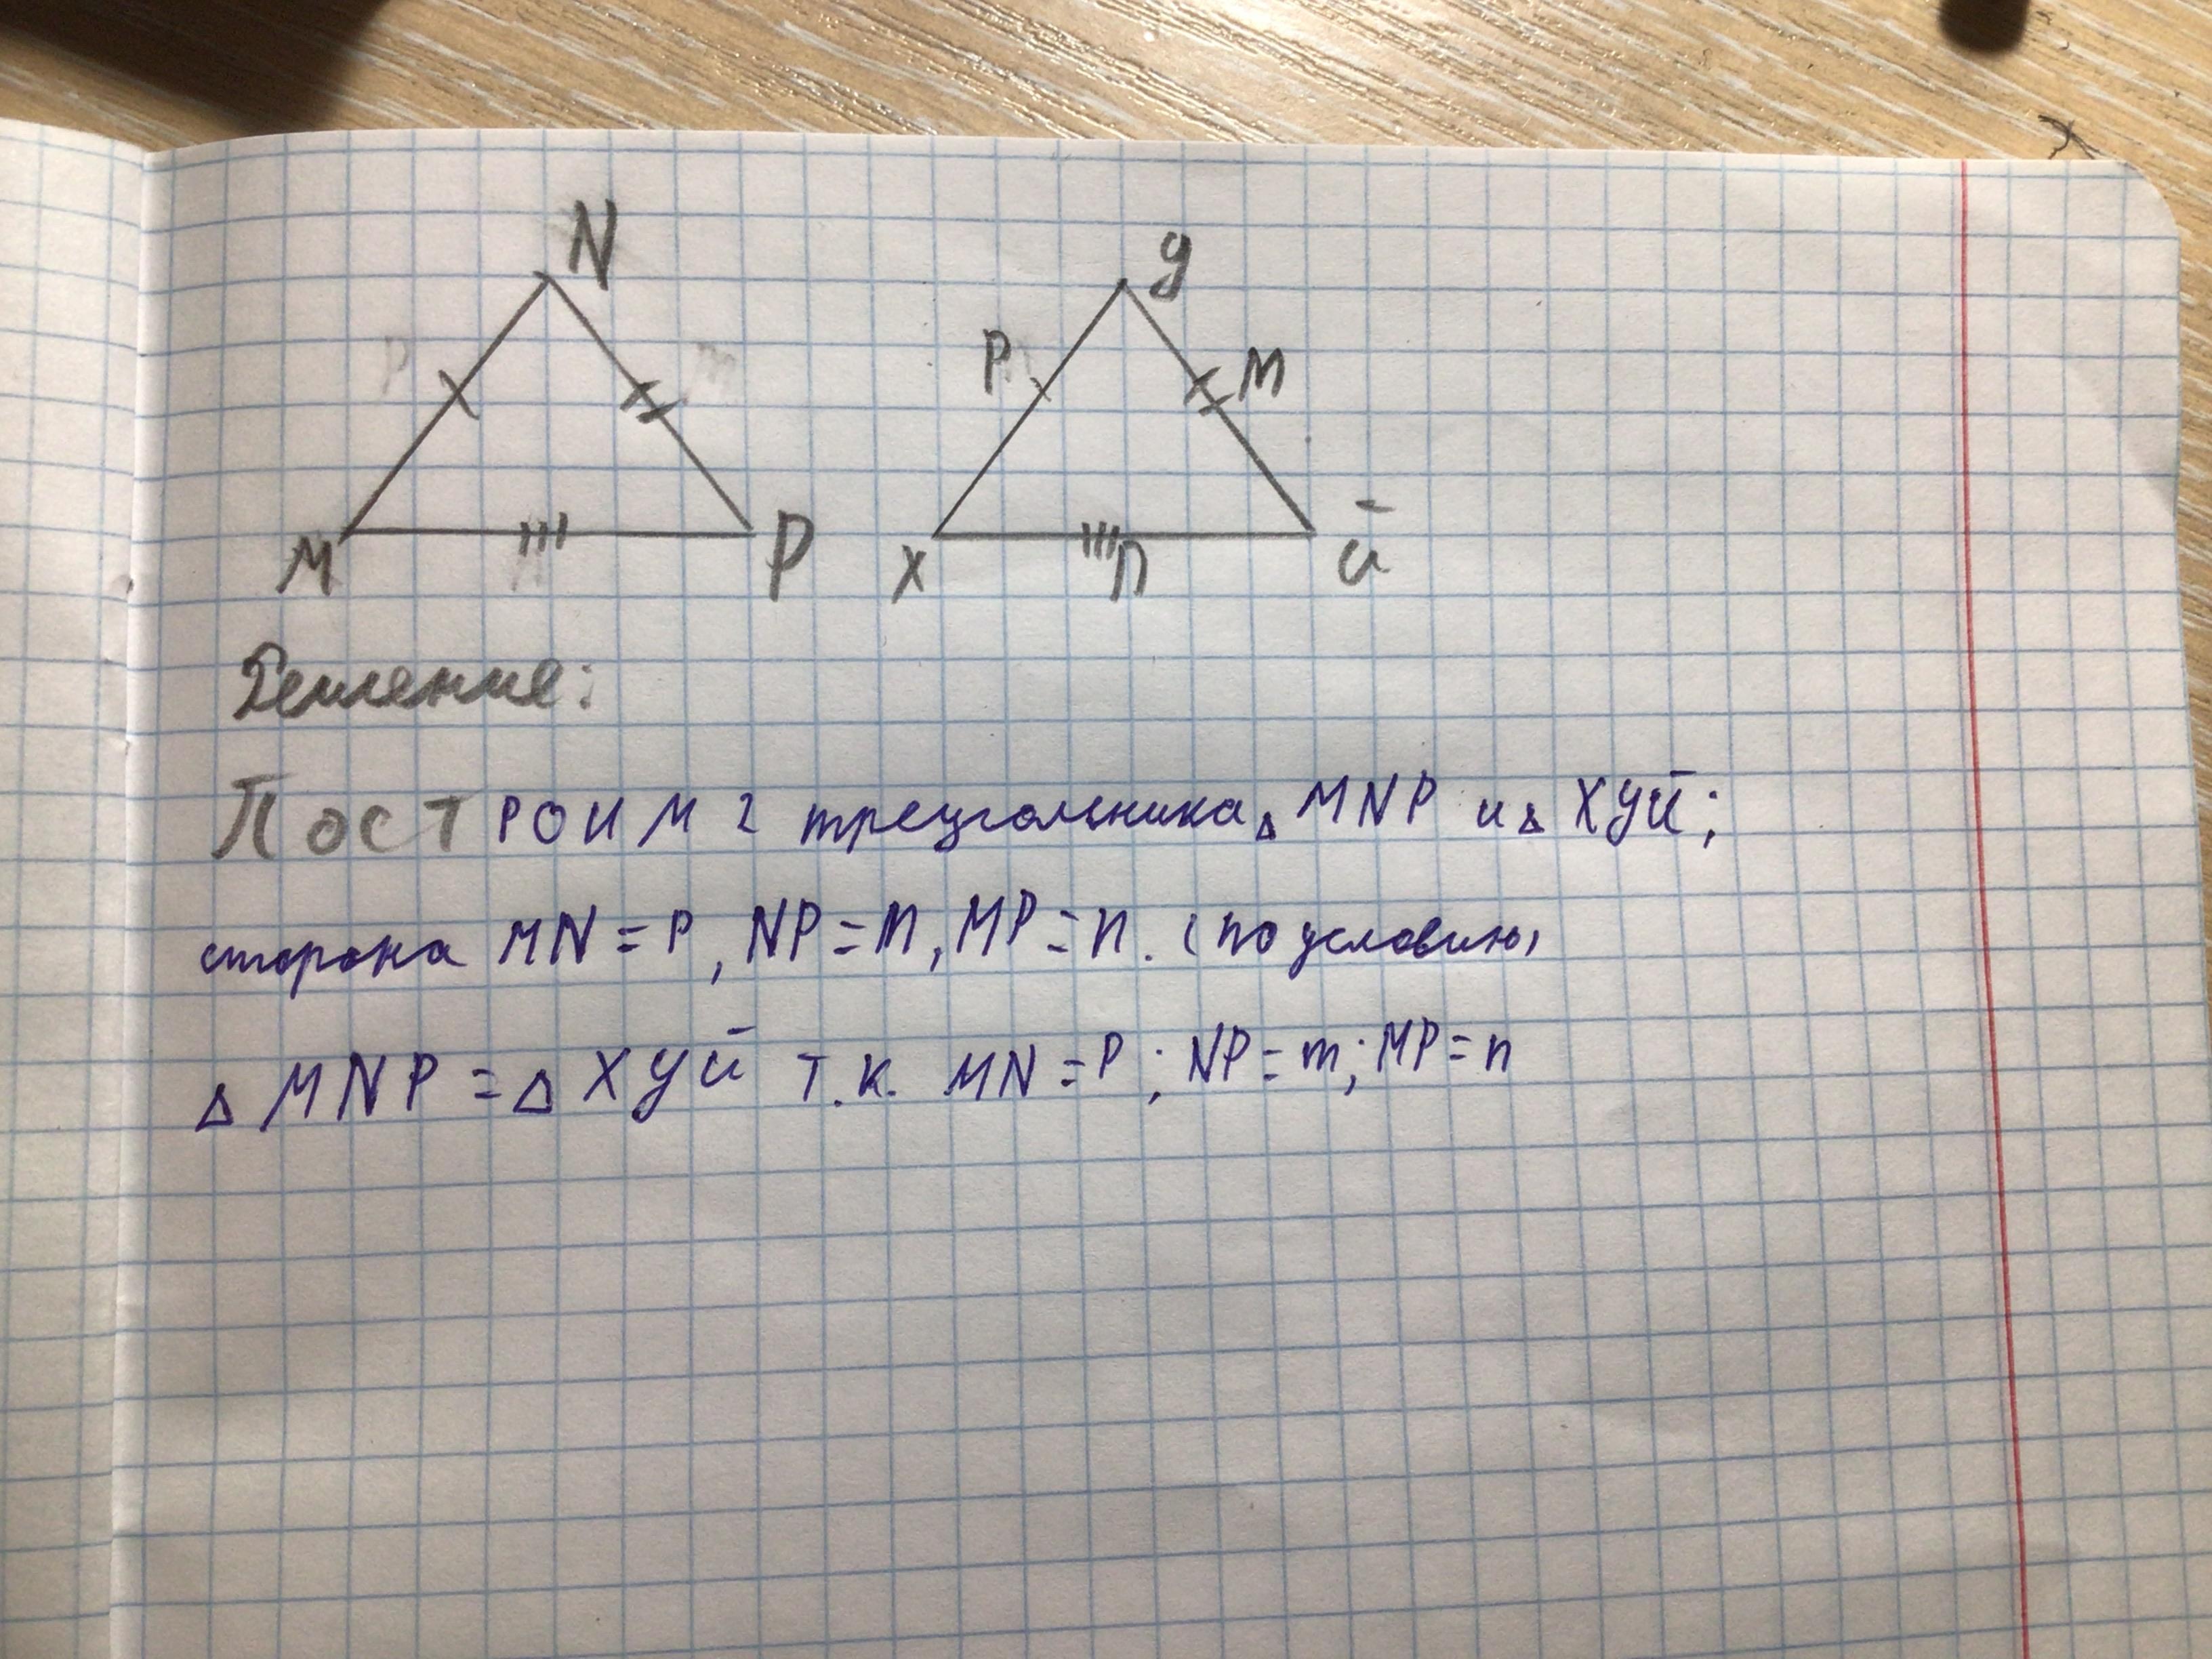 N У
P M
M P X n Й
Решение:
ПОСТРОИМ 2 треугольника △ MNP и △ ХУЙ;
сторона MN = P, NP = m, MP = n. (по условию)
△ MNP = △ ХУЙ т.к. MN = P; NP = m; MP = n